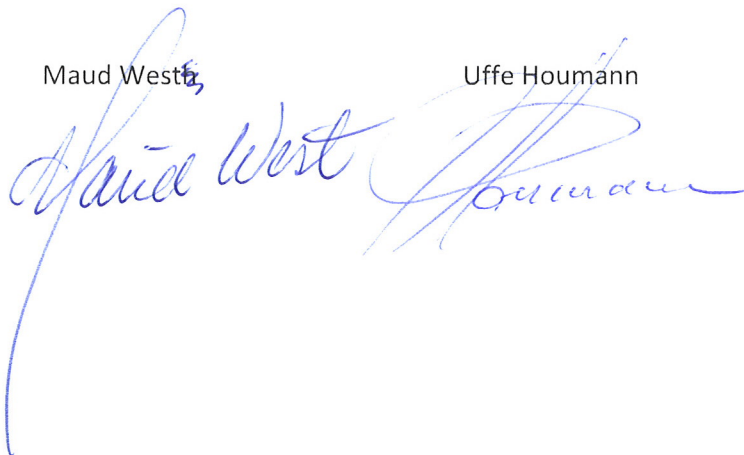 Maud Westh Uffe Houmann
Maud West Houmann